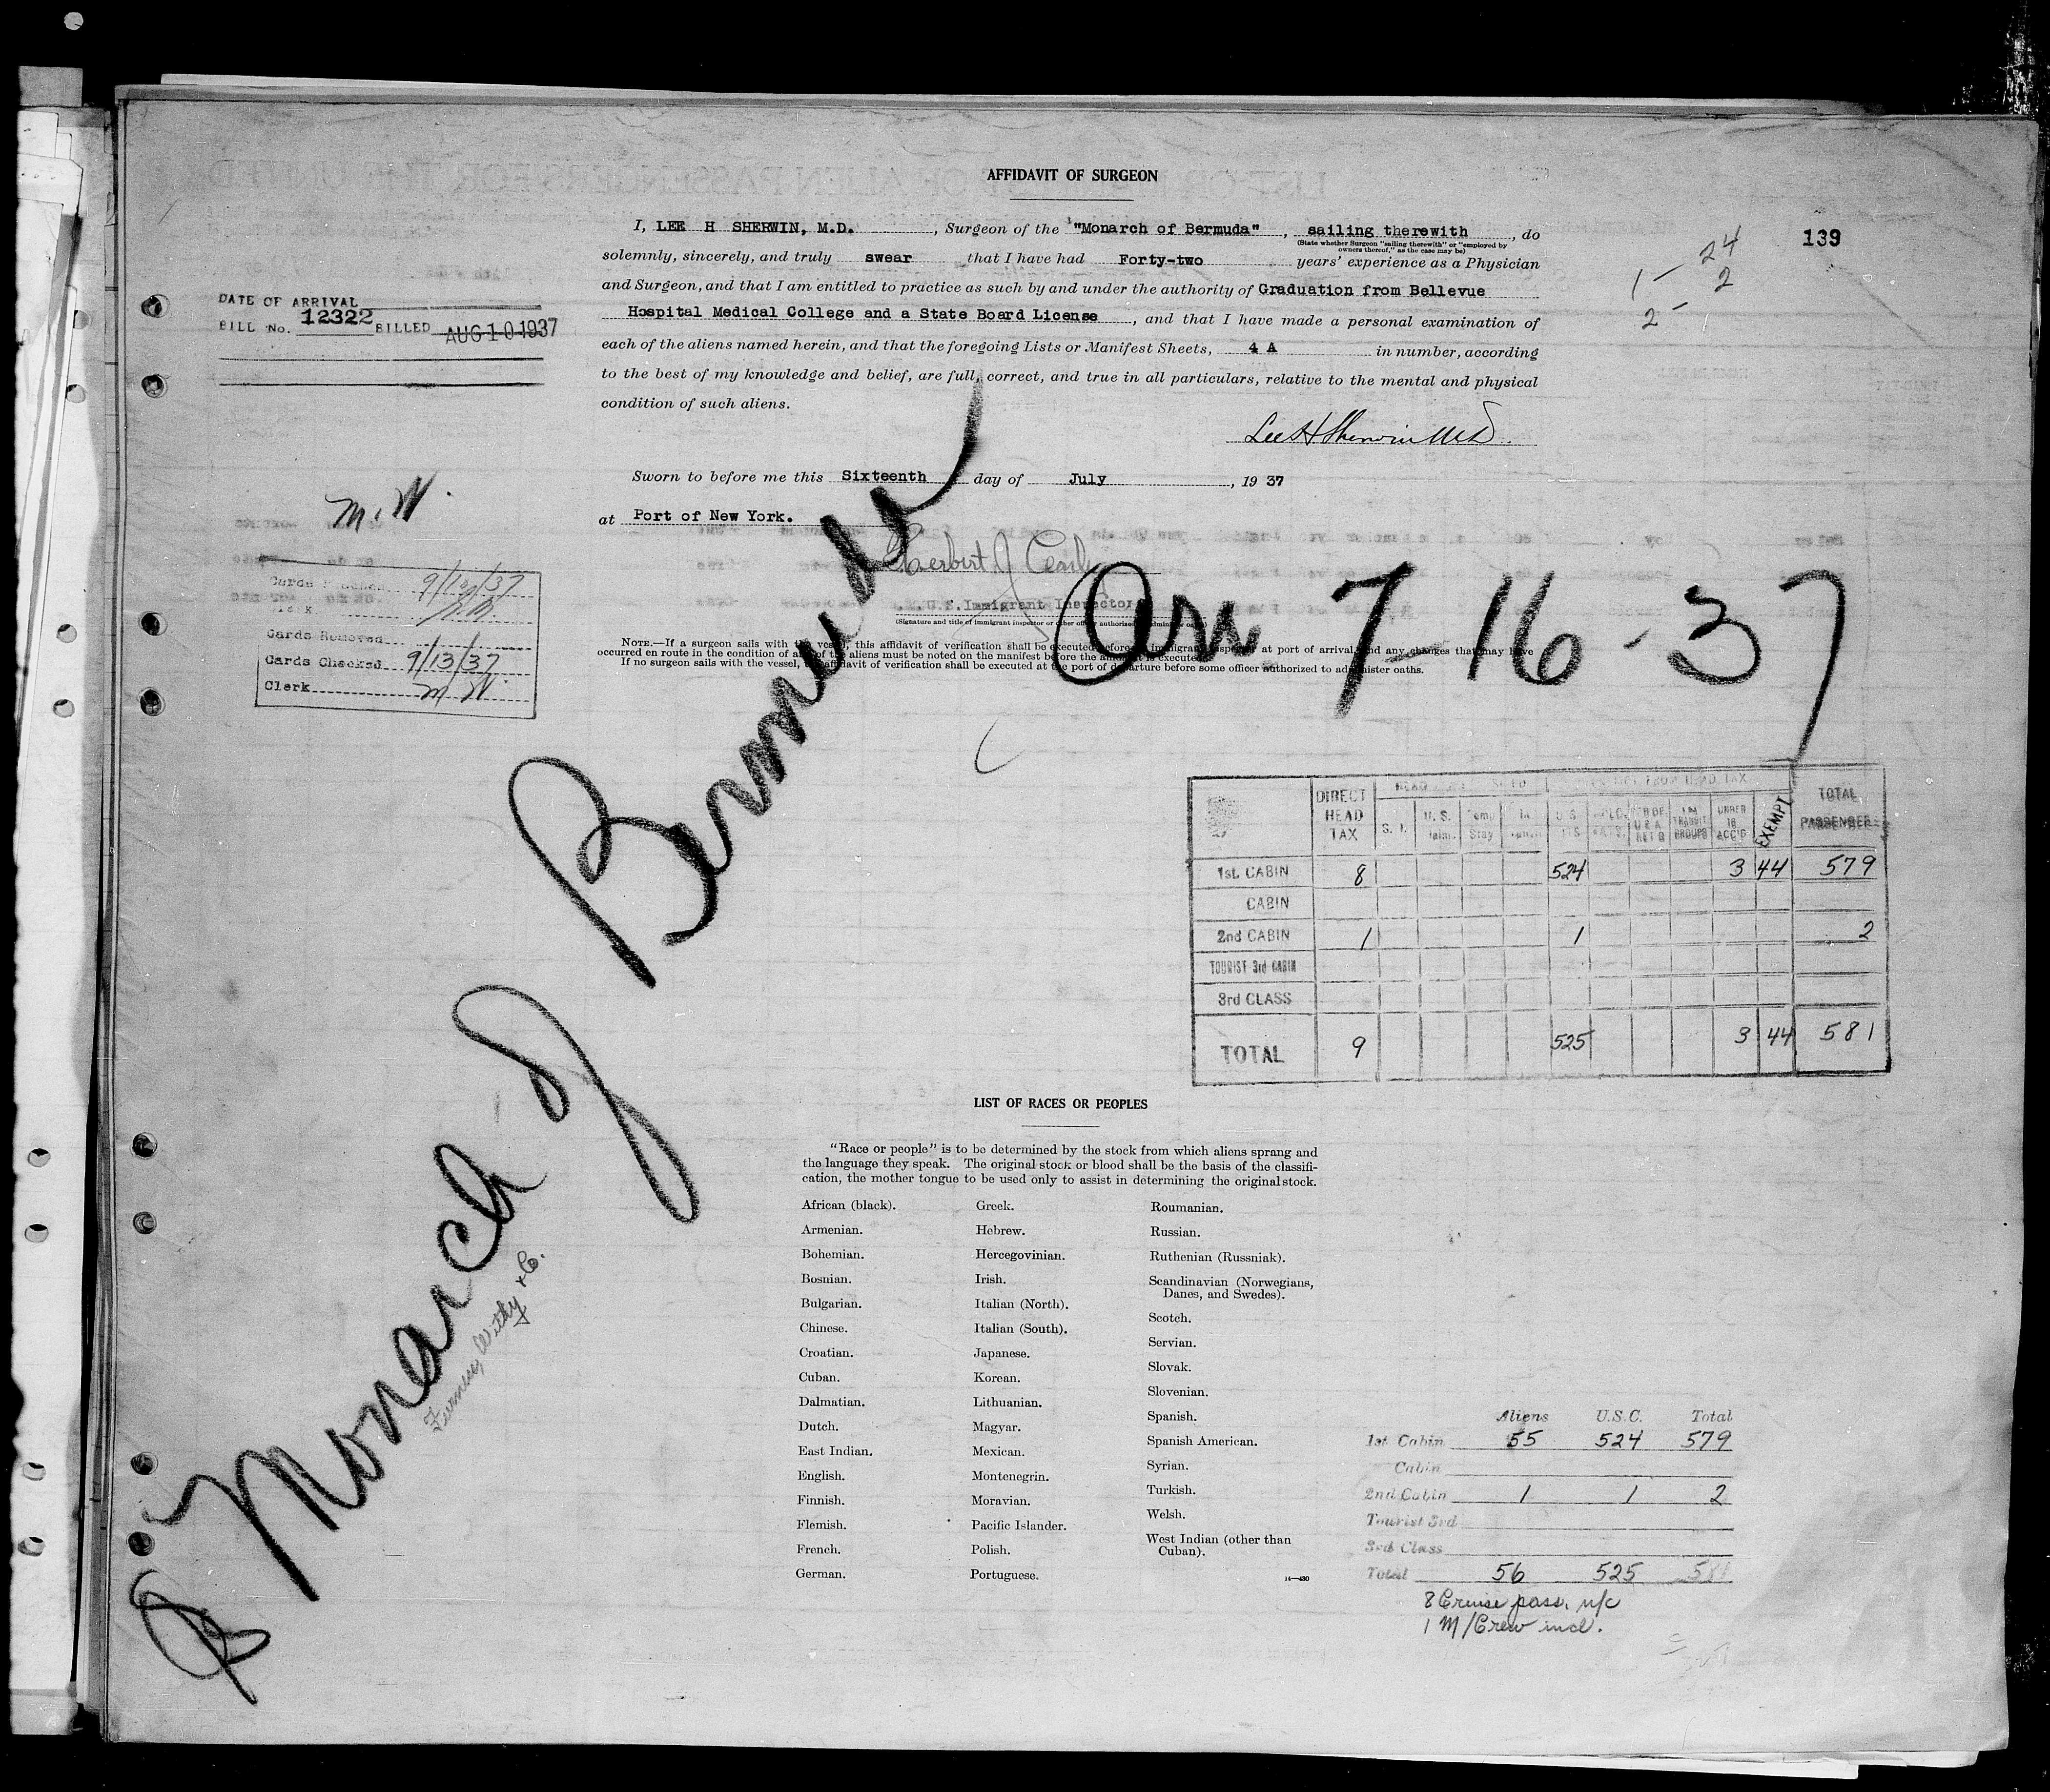 AFFIDAVIT OF SURGEON
I, LEE H SHERWIN, M.D. , Surgeon of the "Monarch of Bermuda" , sailing therewith , do
(State whether Surgeon "sailing therewith" or "employed by owners thereof," as the case may be)
solemnly, sincerely, and truly swear that I have had Forty-two years' experience as a Physician
and Surgeon, and that I am entitled to practice as such by and under the authority of Graduation from Bellevue
Hospital Medical College and a State Board License , and that I have made a personal examination of
each of the aliens named herein, and that the foregoing Lists or Manifest Sheets, 4 A in number, according
to the best of my knowledge and belief, are full, correct, and true in all particulars, relative to the mental and physical
condition of such aliens.
Lee H Sherwin MD.
Sworn to before me this Sixteenth day of July , 19 37
at Port of New York.
Herbert J
U.S. Immigrant Inspector
(Signature and title of immigrant inspector or other officer authorized to administer oaths)
NOTE.—If a surgeon sails with the vessel, this affidavit of verification shall be executed before an immigrant inspector at port of arrival, and any changes that may have
occurred en route in the condition of any of the aliens must be noted on the manifest before the affidavit is executed.
If no surgeon sails with the vessel, the affidavit of verification shall be executed at the port of departure before some officer authorized to administer oaths.
139
24
1 - 2
2 -
DATE OF ARRIVAL
BILL No. 12322 BILLED AUG 10 1937
M. W.
Cards 9/10/37
Clerk M.
Cards Removed
Cards Checked 9/13/37
Clerk M W
Arr 7-16-37
Monarch of Bermuda
Furness, Withy & Co.
DIRECT HEAD TAX
S. I. U. S. Temp Stay In
UNDER 16 ACC'P EXEMPT
TOTAL PASSENGERS
1st. CABIN 8 524 3 44 579
CABIN
2nd CABIN 1 1 2
TOURIST 3rd CABIN
3rd CLASS
TOTAL 9 525 3 44 581
LIST OF RACES OR PEOPLES
"Race or people" is to be determined by the stock from which aliens sprang and
the language they speak. The original stock or blood shall be the basis of the classifi-
cation, the mother tongue to be used only to assist in determining the original stock.
African (black).
Armenian.
Bohemian.
Bosnian.
Bulgarian.
Chinese.
Croatian.
Cuban.
Dalmatian.
Dutch.
East Indian.
English.
Finnish.
Flemish.
French.
German.
Greek.
Hebrew.
Hercegovinian.
Irish.
Italian (North).
Italian (South).
Japanese.
Korean.
Lithuanian.
Magyar.
Mexican.
Montenegrin.
Moravian.
Pacific Islander.
Polish.
Portuguese.
Roumanian.
Russian.
Ruthenian (Russniak).
Scandinavian (Norwegians,
Danes, and Swedes).
Scotch.
Servian.
Slovak.
Slovenian.
Spanish.
Spanish American.
Syrian.
Turkish.
Welsh.
West Indian (other than
Cuban).
14—430
Aliens U.S.C. Total
1st Cabin 55 524 579
Cabin
2nd Cabin 1 1 2
Tourist 3rd
3rd Class
Total 56 525 581
8 Cruise pass. n/c
1 M/Crew incl.